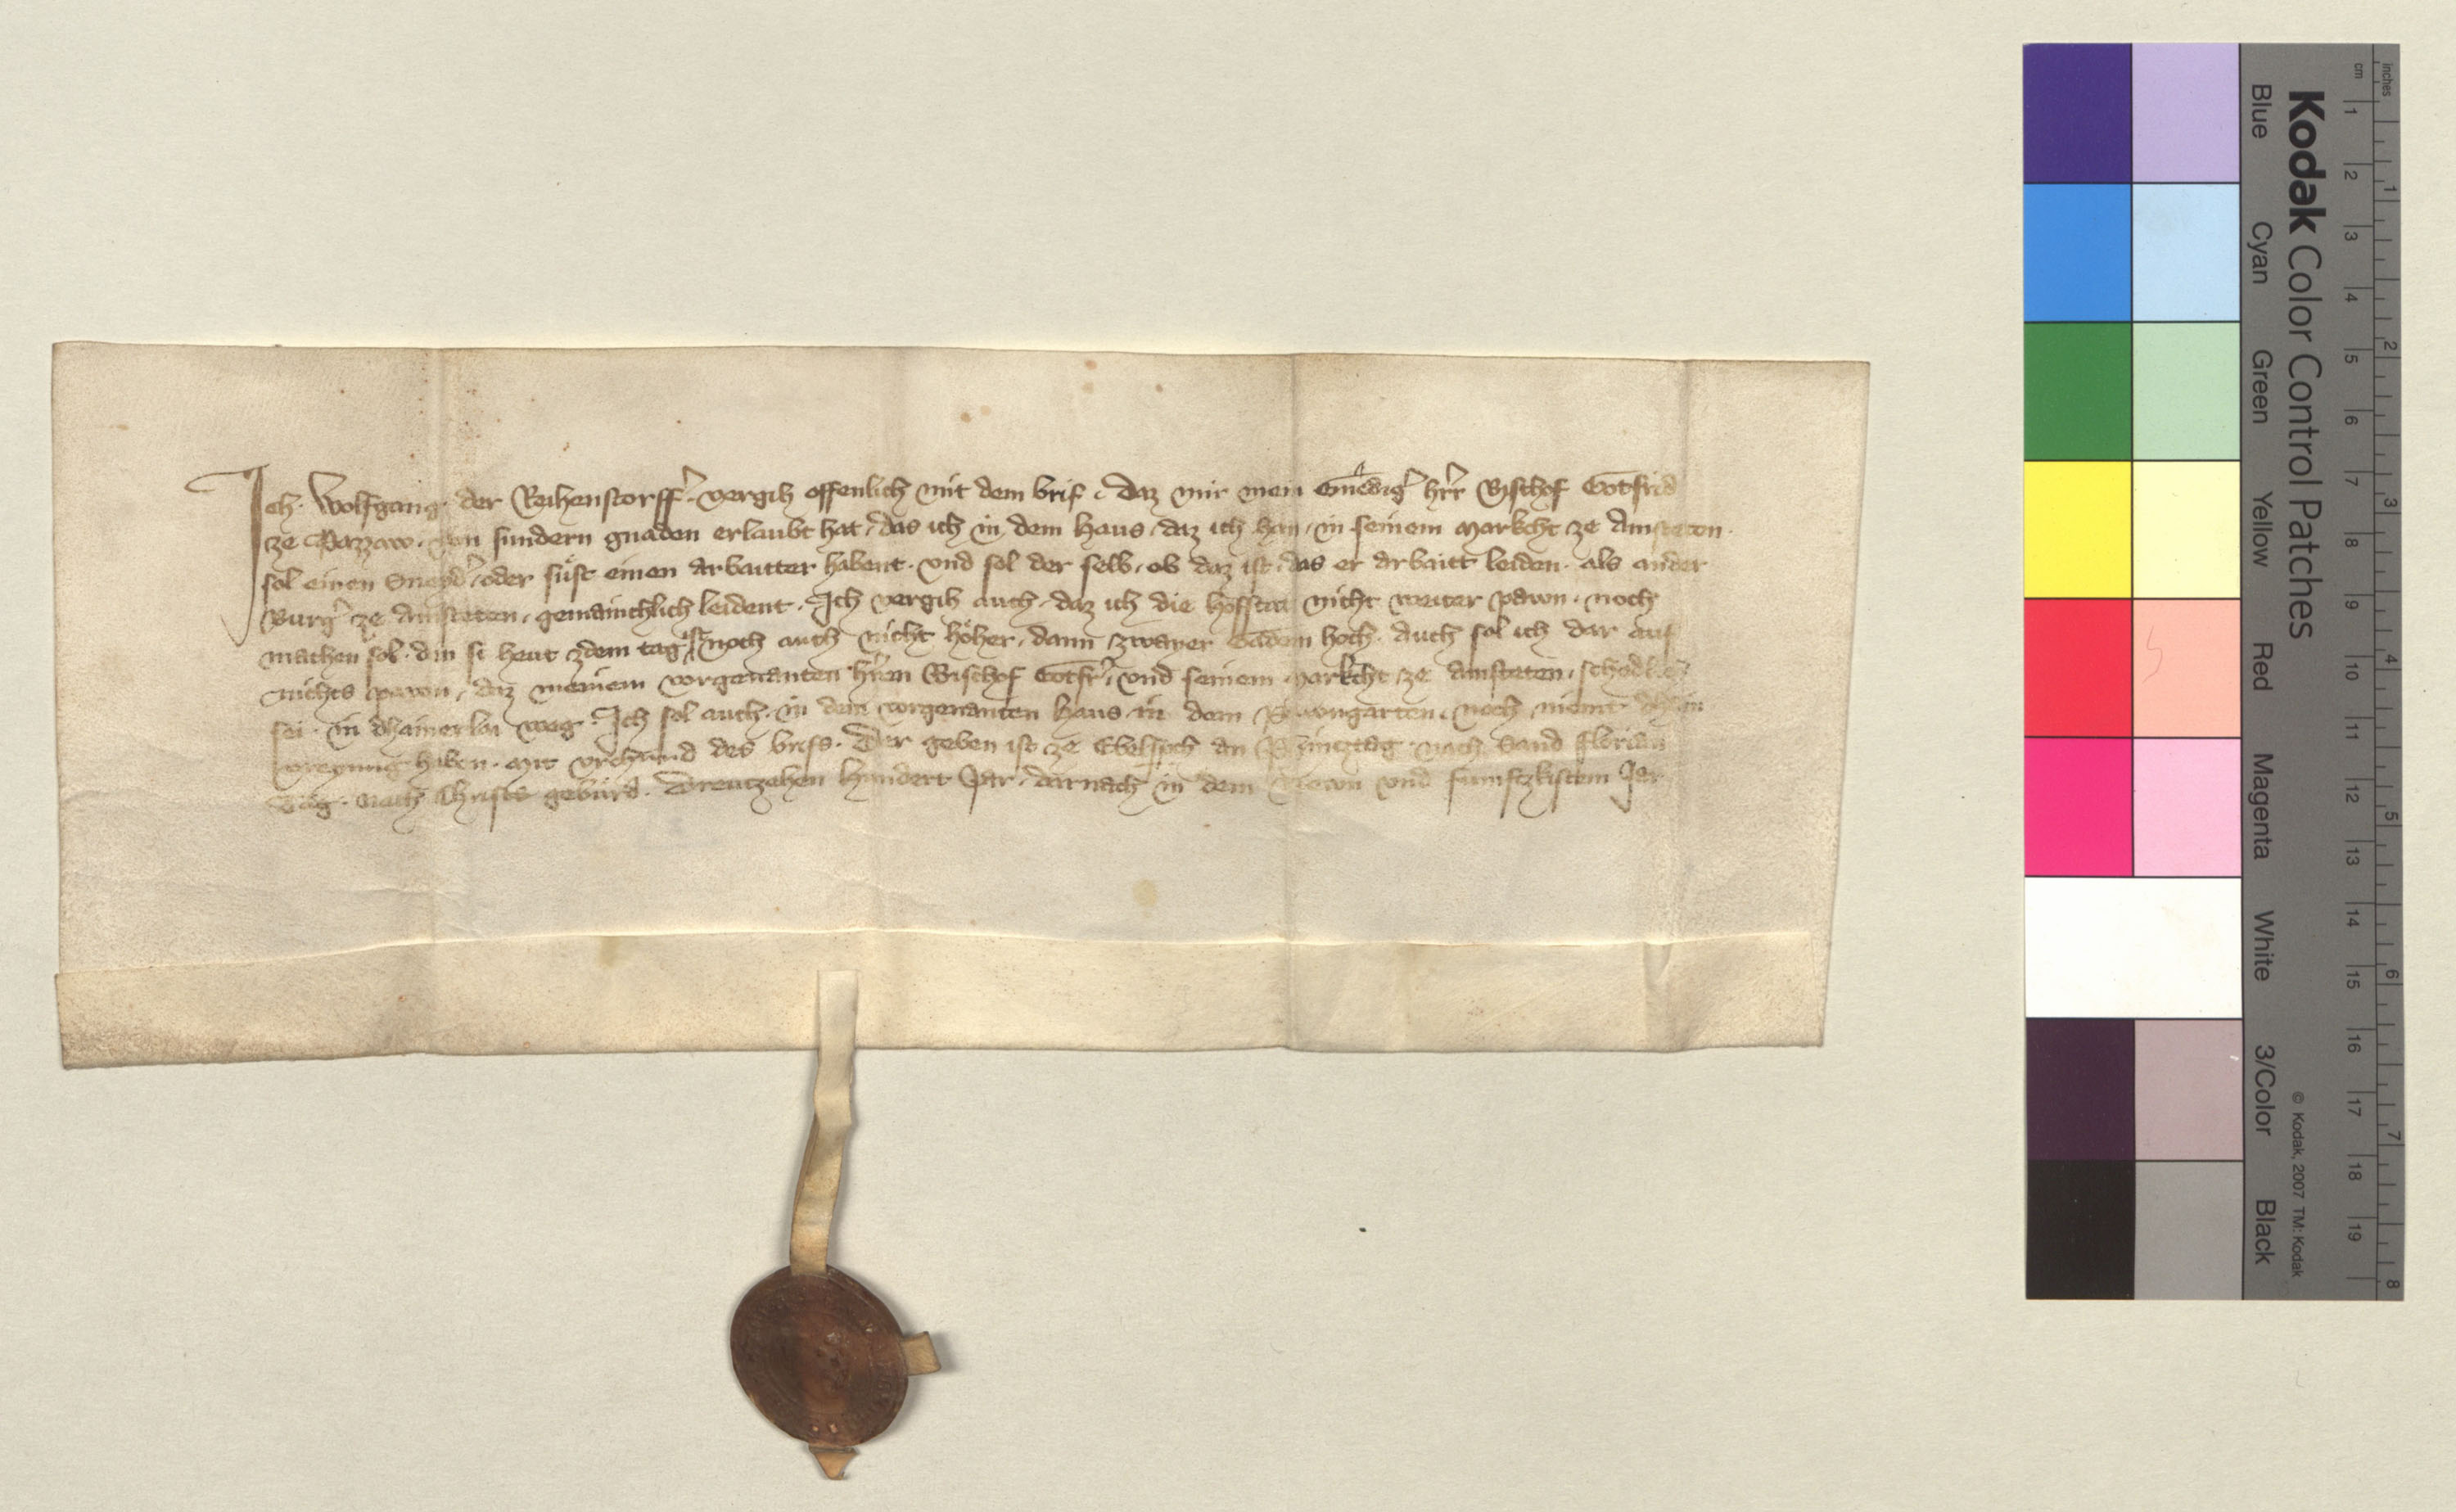 Ich Wolfgang der Reihenstorff᷑ vergih offenlich mit dem brif daz mir mein Gnedig᷑ h᷑r Byschof Gotfrid
ze Pazzaw von sundern gnaden erlaubt hat das ich in dem Haus daz ich han in seinem Markcht ze Amsteten
sol einen Sneyd᷑ oder süst einen arbaitter habent vnd sol der selb ob daz ist das er arbaitt leiden als ander
Burg᷑ ze Amsteten gemainchlich leident Ich vergih auch daz ich die hoffstat nicht weiter pawn noch
machen sol den si heut zdem tag ist noch auch nicht höher dann zwayer Gadem hoch Auch sol ich dar auf
nichts pawen daz meinem vorgenanten h᷑ren Bischof Gotfr᷑ vnd seinem Markcht ze Amsteten schedlich
sei in dhainerlai weg Ich sol auch in dem vorgenanten Haus in dem Pawngarten noch niemt dhain
haben mit vrchund des brifs Der geben ist ze Ebelsperch an Phincztag nach Sand Florian
Tag Nach Christs gebürd Dreutzehen Hundert Jar darnach in dem Newn vnd fumftzkistem Jar
Kodak Color Control Patches
Blue Cyan Green Yellow Red Magenta White 3/Color Black
© Kodak, 2007 TM: Kodak
cm 1 2 3 4 5 6 7 8 9 10 11 12 13 14 15 16 17 18 19
inches 1 2 3 4 5 6 7 8